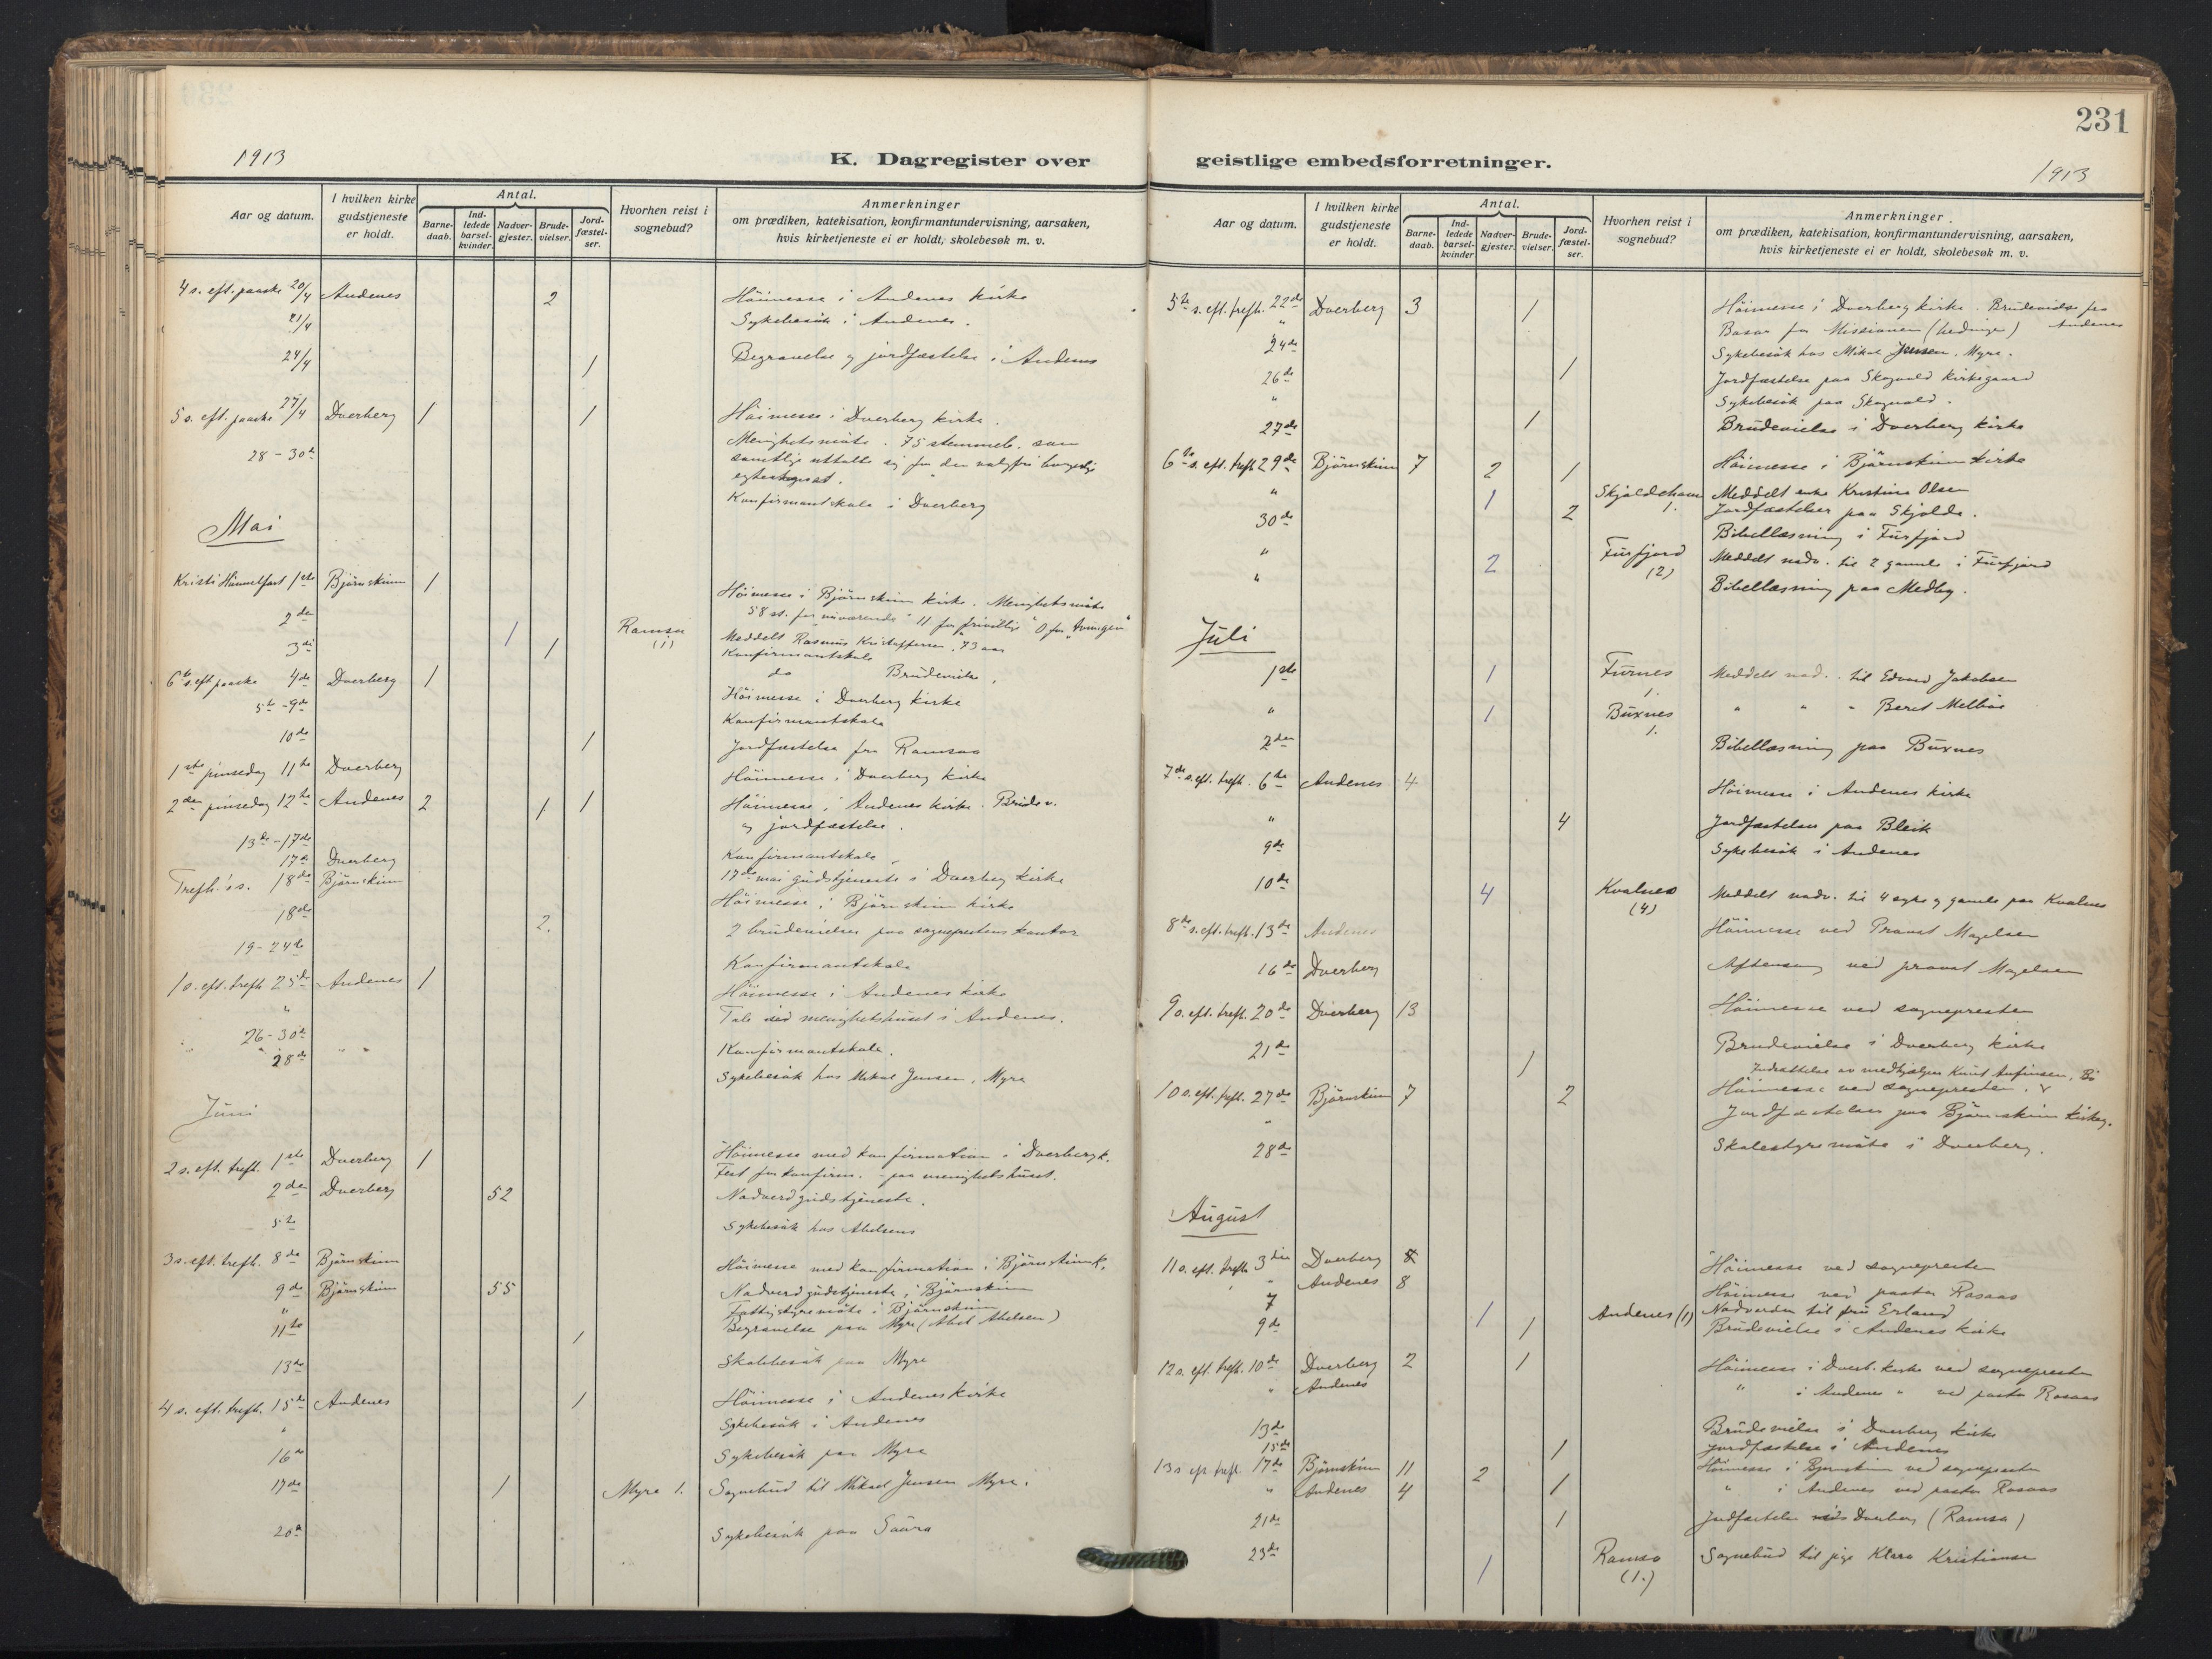 1913
K. Dagregister over
Aar og datum. I hvilken kirke gudstjeneste er holdt. Antal. Barne-daab. Ind-ledede barsel-kvinder. Nadver-gjester. Brude-vielser. Jord-fæstel-ser. Hvorhen reist i sognebud? Anmerkninger om prædiken, katekisation, konfirmantundervisning, aarsaken, hvis kirketjeneste ei er holdt, skolebesøk m. v.
4 s. eft. paaske 20/4 Andenes 2 Höimesse i Andenes kirke
21/4 Sykebesök i Andenes.
24/4 1 Begravelse og jordfæstelse i Andenes
5 s. eft. paaske 27/4 Dverberg 1 1 Höimesse i Dverberg kirke.
Menighetsmöte. 75 stemmeb. som
samtlige uttalte sig for den
28-30te Konfirmantskole i Dverberg
Mai
Kristi Himmelfart 1ste Björnskinn 1 Höimesse i Björnskinn kirke. Menighetsmöte
58 st. for "nuværende" 11 for frivillig 0 for "tvungen"
2den 1 Ramsa (1) Meddelt Rasmus Kristoffersen, 73 aar
Konfirmantskole
3die 1 do Brudevielse.
6te s. eft. paaske 4de Dverberg 1 Höimesse i Dverberg kirke
5te-9de Konfirmantskole
10de 1 Jordfæstelse fra Ramsaa
1ste pinsedag 11te Dverberg Höimesse i Dverberg kirke
2den pinsedag 12te Andenes 2 1 1 Höimesse i Andenes kirke. Brudev.
og jordfæstelse.
13de-17de Konfirmantskole
17de Dverberg 17de mai gudstjeneste i Dverberg kirke
Trefh.'s s. 18de Björnskinn Höimesse i Björnskinn kirke
18de 2. 2 brudevielser paa sogneprestens kontor
19-24de Konfirmantskole
1 s. eft. trefh. 25de Andenes 1 Höimesse i Andenes kirke
" Tale ved menighetshuset i Andenes.
26-30te Konfirmantskole.
28de Sykebesök hos Mikal Jensen, Myre
Juni
2 s. eft. trefh. 1ste Dverberg 1 Höimesse med konfirmation i Dverberg k.
Fest for konfirm. paa menighetshuset.
2den Dverberg 52 Nadverdgudstjeneste.
5te Sykebesök hos Abelsens
3 s. eft. trefh. 8de Björnskinn Höimesse med konfirmation i Björnskinn k.
9de Björnskinn 55 Nadverdgudstjeneste i Björnskinn
" Fattigstyremöte i Björnskinn
11te 1 Begravelse paa Myre (Abel Abelsen)
13de Skolebesök paa Myre
4 s. eft. trefh. 15de Andenes 1 Höimesse i Andenes kirke
" Sykebesök i Andenes
16de Sykebesök paa Myre
17de 1 Myre 1. Sognebud til Mikael Jensen Myre.
20de Sykebesök paa Saura
231
1913
geistlige embedsforretninger.
Aar og datum. I hvilken kirke gudstjeneste er holdt. Antal. Barne-daab. Ind-ledede barsel-kvinder Nadver-gjester. Brude-vielser. Jord-fæstel-ser. Hvorhen reist i sognebud? Anmerkninger om prædiken, katekisation, konfirmantundervisning, aarsaken, hvis kirketjeneste ei er holdt, skolebesøk m. v.
5te s. eft. trefh. 22de Dverberg 3 1 Höimesse i Dverberg kirke. Brudevielse fra Andenes
" Basar for Missionen (hedninge)
24de Sykebesök hos Mikal Jensen, Myre.
26de 1 Jordfæstelse paa Skogvold kirkegaard
" Sykebesök paa Skogvold.
27de 1 Brudevielse i Dverberg kirke
6te s. eft. trefh. 29de Björnskinn 7 2 1 Höimesse i Björnskinn kirke
" 1 Skjoldehavn 1. Meddelt enke Kristine Olsen
30de 2 Jordfæstelser paa Skjolde.
Bibellæsning i Furfjord
" 2 Furfjord (2) Meddelt nadv. til 2 gamle i Furfjord
" Bibellæsning paa Medby.
Juli
1ste 1 Furnes 1. Meddelt nad. til Edvard Jakobsen
" 1 Buxnes 1. " " " Beret Melböe
2den Bibellæsning paa Buxnes
7de s. eft. trefh. 6te Andenes 4 Höimesse i Andenes kirke
" 4 Jordfæstelser paa Bleik
9de Sykebesök i Andenes
10de 4 Kvalnes (4) Meddelt nadv. til 4 syke og gamle paa Kvalnes
8de s. eft. trefh. 13de Andenes Höimesse ved Provst Magelsen
16de Dverberg Aftensang ved provst Magelsen
9 s. eft. trefh. 20de Dverberg 13 Höimesse ved sognepresten
21de 1 Brudevielse i Dverberg kirke
Indsættelse av medhjælper Knut Anfinsen, Bö
10 s. eft. trefh. 27de Björnskinn 7 2 Höimesse ved sognepresten.
" Jordfæstelser paa Björnskinn kirkeg.
28de Skolestyremöte i Dverberg.
August
11 s. eft. trefh. 3die Dverberg 8 Höimesse ved sognepresten
" Andenes 8 Höimesse ved pastor Rosaas
7 1 Andenes (1) Nadverden til fru Erland
9de 1 Brudevielse i Andenes kirke
12 s. eft. trefh. 10de Dverberg 2 1 Höimesse i Dverb. kirke ved sognepresten
" Andenes " i Andenes " ved pastor Rosaas
13de Brudevielse i Dverberg kirke
15de 1 Jordfæstelse i Andenes
13 s. eft. trefh. 17de Björnskinn 11 2 1 Höimesse i Björnskinn ved sognepresten
" Andenes 4 1 " i Andenes ved pastor Rosaas
21de 1 Jordfæstelse Dverberg (Ramsa)
23de 1 Ramsa (1.) Sognebud til pige Klara Kristiansen